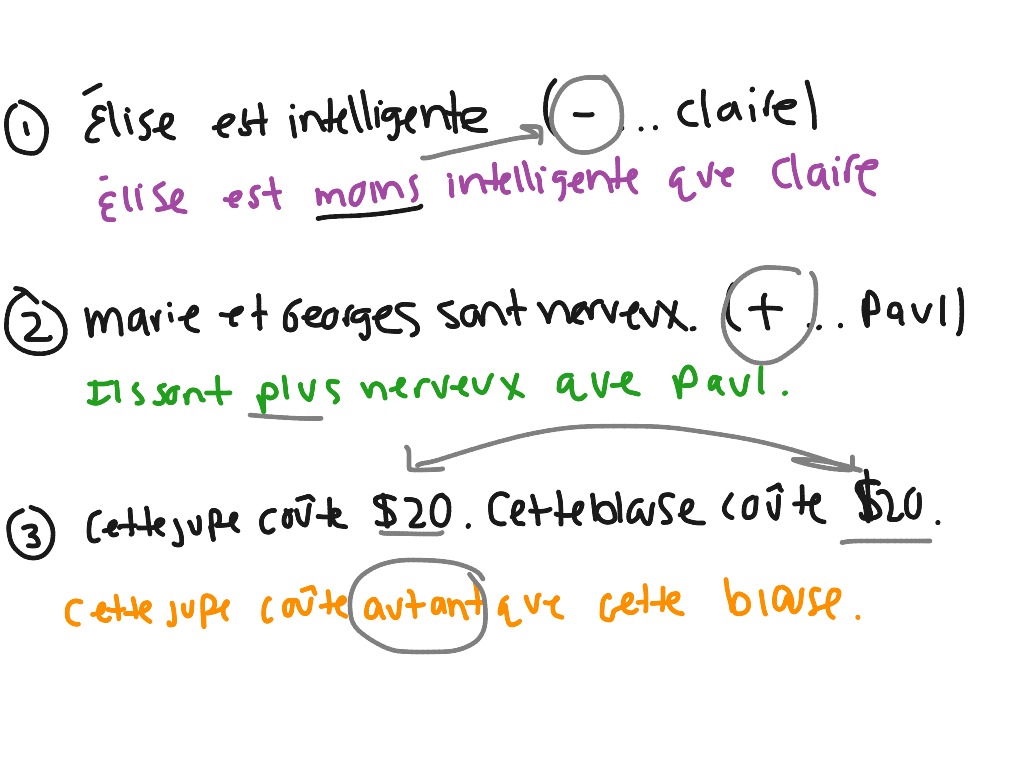 ① Élise est intelligente (- ... Claire)
Élise est moins intelligente que Claire
② Marie et Georges sont nerveux. (+ ... Paul)
Ils sont plus nerveux que Paul.
③ Cette jupe coûte $20. Cette blouse coûte $20.
Cette jupe coûte autant que cette blouse.